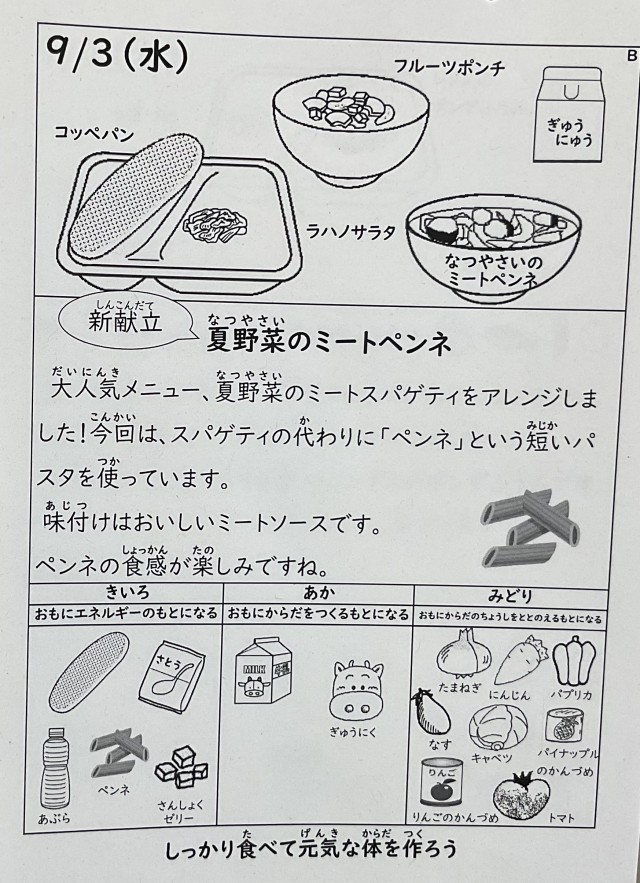 9/3(水)
B
フルーツポンチ
ぎゅう
にゅう
コッペパン
ラハノサラタ
なつやさいの
ミートペンネ
しんこんだて
新献立
なつやさい
夏野菜のミートペンネ
だいにんき なつやさい
大人気メニュー、夏野菜のミートスパゲティをアレンジしま
こんかい か みじか
した!今回は、スパゲティの代わりに「ペンネ」という短いパ
つか
スタを使っています。
あじつ
味付けはおいしいミートソースです。
しょっかん たの
ペンネの食感が楽しみですね。
きいろ
あか
みどり
おもにエネルギーのもとになる
おもにからだをつくるもとになる
おもにからだのちょうしをととのえるもとになる
さとう
MILK
ぎゅうにく
たまねぎ
にんじん
パプリカ
なす
キャベツ
パイナップル
のかんづめ
あぶら
ペンネ
さんしょく
ゼリー
りんご
りんごのかんづめ
トマト
た げんき からだ つく
しっかり食べて元気な体を作ろう